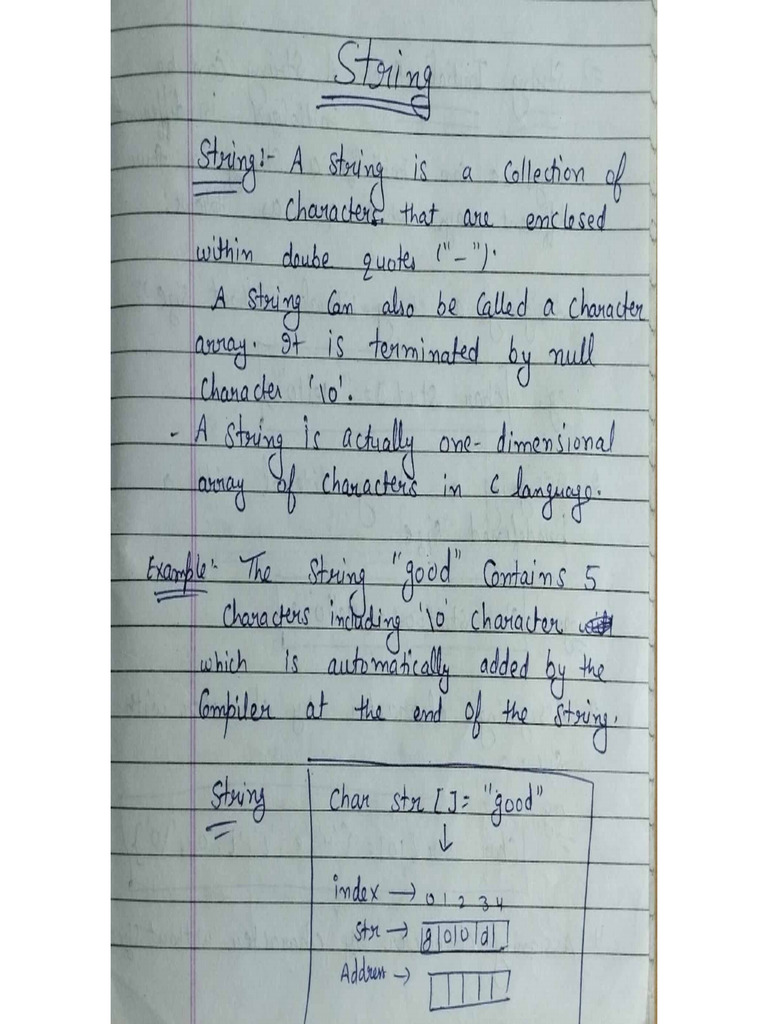 String
String:- A string is a Collection of
Characters that are enclosed
within doube quotes ("-").
A string Can also be Called a Character
array. It is terminated by null
Character '\0'.
- A string is actually one-dimensional
array of characters in C language.
Example:- The string "good" Contains 5
Characters including '\0' character
which is automatically added by the
Compiler at the end of the string.
String
Char str []= "good"
↓
index → 0 1 2 3 4
str → |g|o|o|d|
Address →